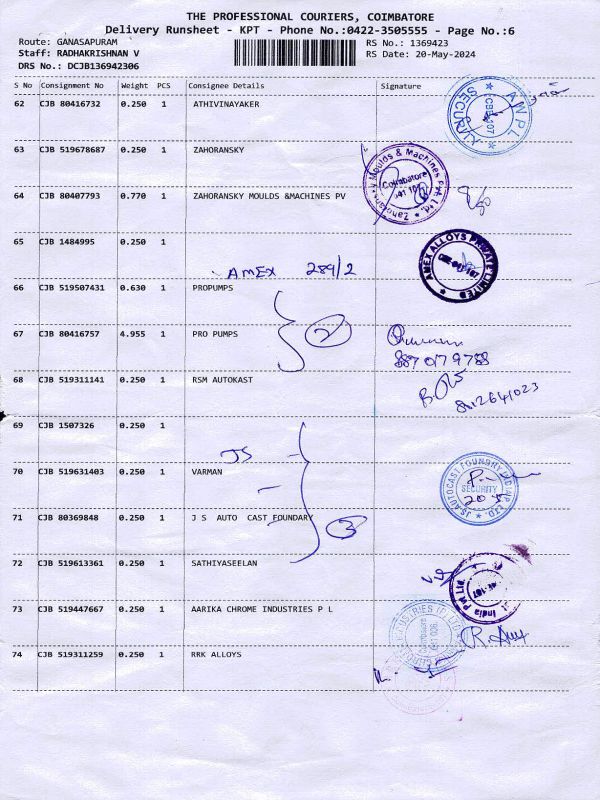 THE PROFESSIONAL COURIERS, COIMBATORE
Delivery Runsheet - KPT - Phone No.:0422-3505555 - Page No.:6
Route: GANASAPURAM RS No.: 1369423
Staff: RADHAKRISHNAN V RS Date: 20-May-2024
DRS No.: DCJB136942306
S No Consignment No Weight PCS Consignee Details Signature
62 CJB 80416732 0.250 1 ATHIVINAYAKER
AWPL SECURITY
63 CJB 519678687 0.250 1 ZAHORANSKY
Zahoransky Moulds & Machines Pvt. Ltd. Coimbatore
64 CJB 80407793 0.770 1 ZAHORANSKY MOULDS &MACHINES PV
65 CJB 1484995 0.250 1
AMEX ALLOYS PRIVATE LIMITED
AMEX 289/2
66 CJB 519507431 0.630 1 PROPUMPS
2
67 CJB 80416757 4.955 1 PRO PUMPS
68 CJB 519311141 0.250 1 RSM AUTOKAST
69 CJB 1507326 0.250 1
JS
70 CJB 519631403 0.250 1 VARMAN
JS AUTOCAST FOUNDRY SECURITY
71 CJB 80369848 0.250 1 J S AUTO CAST FOUNDARY
3
72 CJB 519613361 0.250 1 SATHIYASEELAN
India Pvt Ltd
73 CJB 519447667 0.250 1 AARIKA CHROME INDUSTRIES P L
INDUSTRIES (P) LTD
74 CJB 519311259 0.250 1 RRK ALLOYS